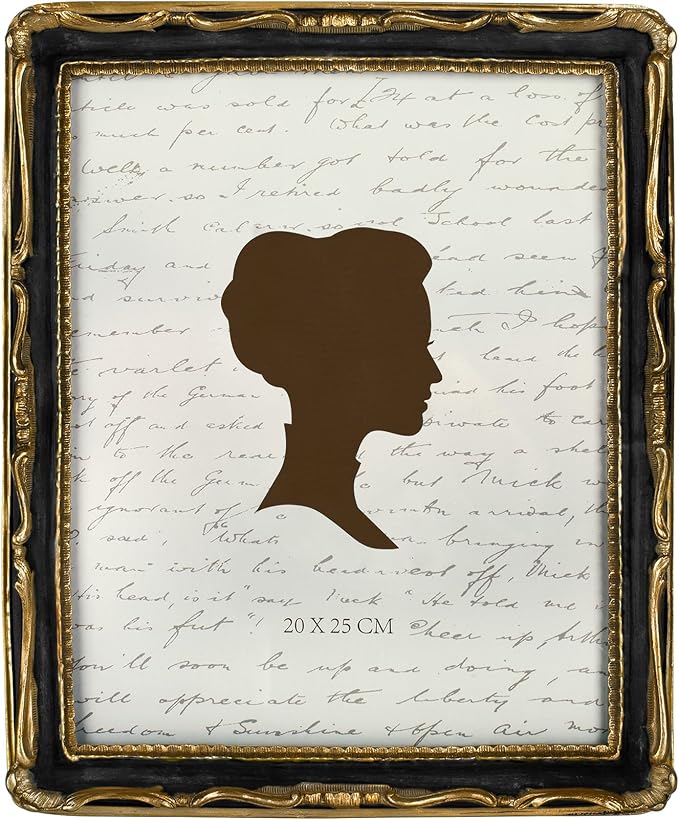 ticle was sold for £24 at a loss of
much per cent. What was the cost pr
Well, a number got told for the
answer, so I retired badly wounde
Smith so not School last
Friday and ead seen
and surviv ked him
emember I hop
varlet heard the
ry of the German his foot
t off and asked private to car
in to the rear the way a shel
k off the Germ but Mick w
ignorant of arrival, the
? said, Whats bringing in
man" with his head off, Mick
His head, is it" say Mick "He told me
was his fut"! Cheer up, Arth
20 X 25 CM
you'll soon be up and doing, an
will appreciate the liberty and
freedom & Sunshine & Open Air mo